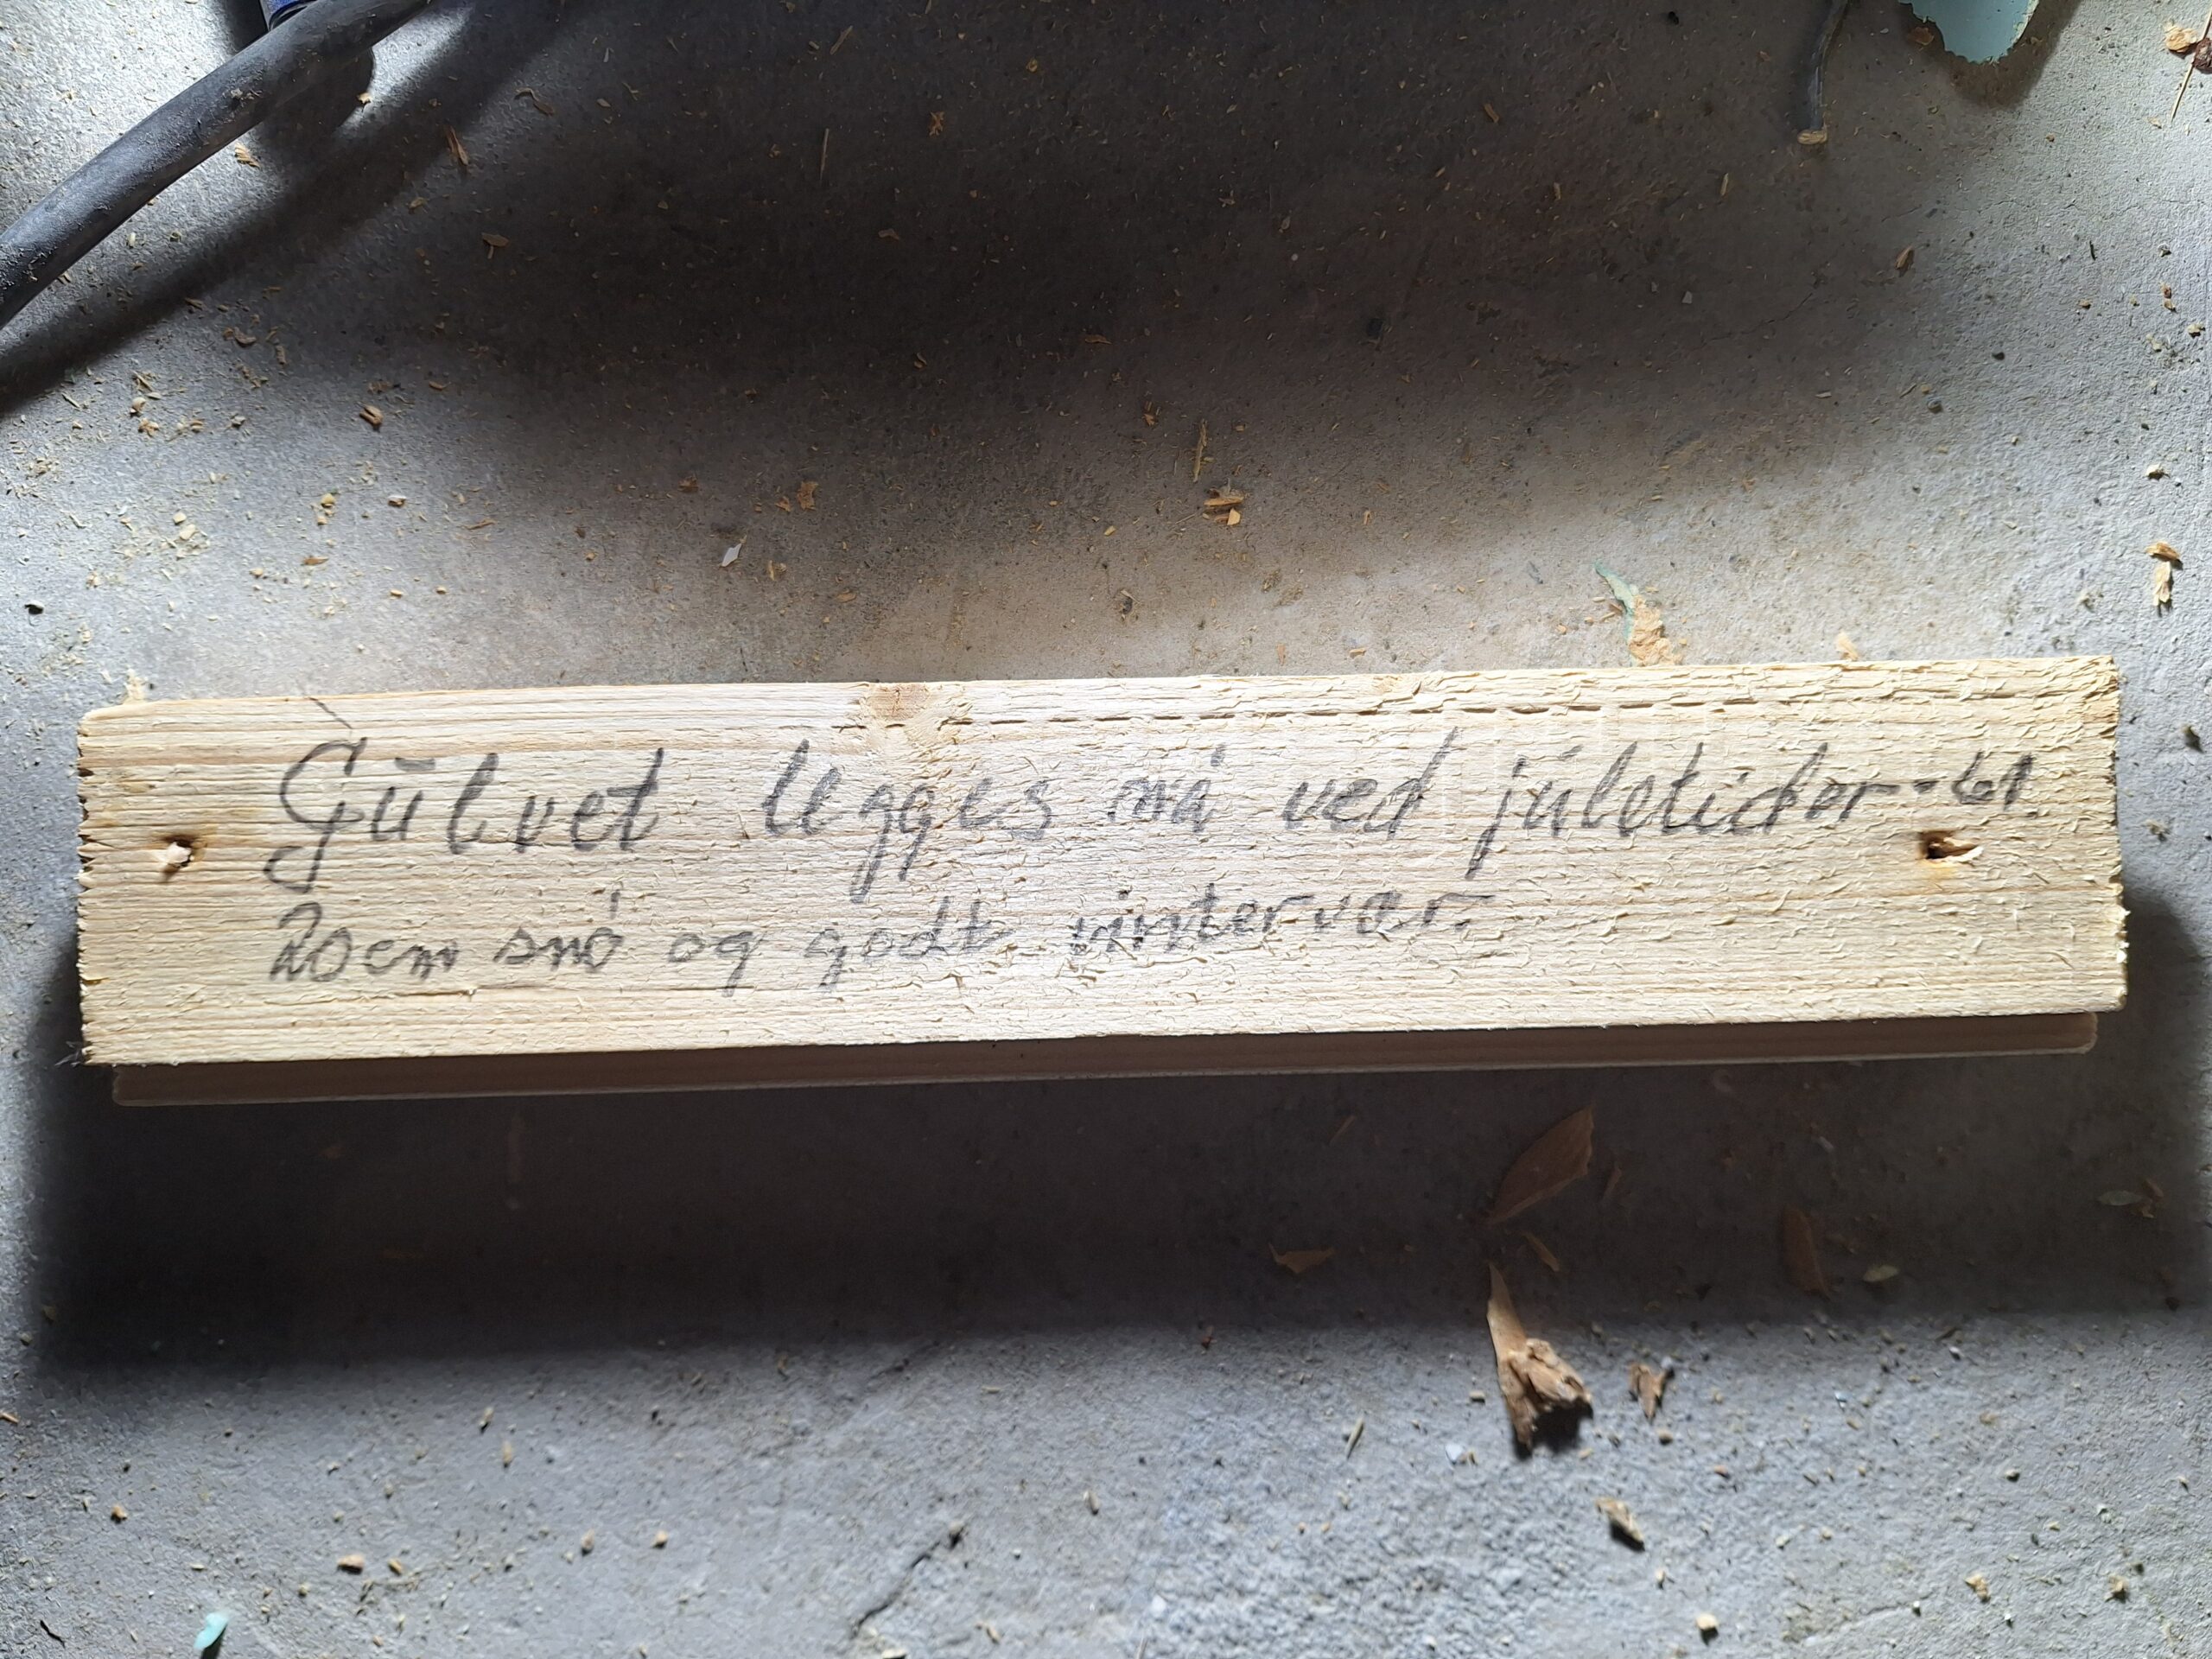 Gulvet legges nå ved juletider - 61.
20 cm snø og godt vintervær.